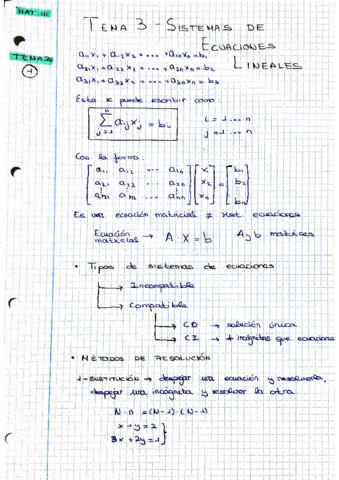 MAT III
TEMA 3 - SISTEMAS DE
ECUACIONES
LINEALES
TEMA 3
1
a₁₁x₁ + a₁₂x₂ + ... + a₁ₙxₙ = b₁
a₂₁x₁ + a₂₂x₂ + ... + a₂ₙxₙ = b₂
a₃₁x₁ + a₃₂x₂ + ... + a₃ₙxₙ = b₃
Esta se puede escribir como:
∑ⁿⱼ₌₁ aᵢⱼxⱼ = bᵢ i = 1 ... n
j = 1 ... n
Con la forma:
[a₁₁ a₁₂ ... a₁ₙ] [x₁] [b₁]
[a₂₁ a₂₂ ... a₂ₙ] [x₂] = [b₂]
[aₙ₁ aₙ₂ ... aₙₙ] [xₙ] [bₙ]
Es una ecuación matricial ≠ sist. ecuaciones
Ecuación matricial → A · X = b A y b matrices
• Tipos de sistemas de ecuaciones
→ Incompatible
→ Compatible
→ CD → solución única
→ CI → + incógnitas que ecuaciones
• MÉTODOS DE RESOLUCIÓN
1-SUSTITUCIÓN → despejar una ecuación y resolverla,
despejar una incógnita y resolver la otra.
N · n = (N-1) · (N-1)
x + y = 2
3x + 2y = 1